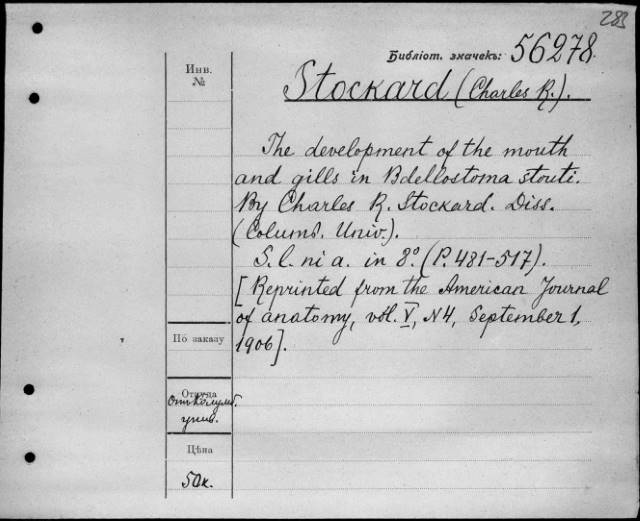 283
Библіот. значекъ: 56278.
Инв.
№
Stockard (Charles R.).
The development of the mouth
and gills in Bdellostoma stouti.
By Charles R. Stockard. Diss.
(Columb. Univ.).
S. l. ni a. in 8º. (P. 481-517).
[Reprinted from the American Journal
of anatomy, vol. V, N4, September 1,
1906].
По заказу
Откуда
От Колумб.
унив.
Цѣна
50к.